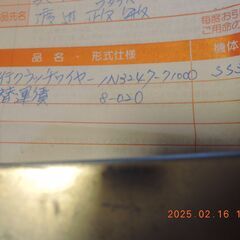 品先名
毎度お引
ご用命の
品名・形式仕様
機体
行クラッチワイヤー 1N3247-71000 SSS
替運賃 8-020
2025.02.16 1